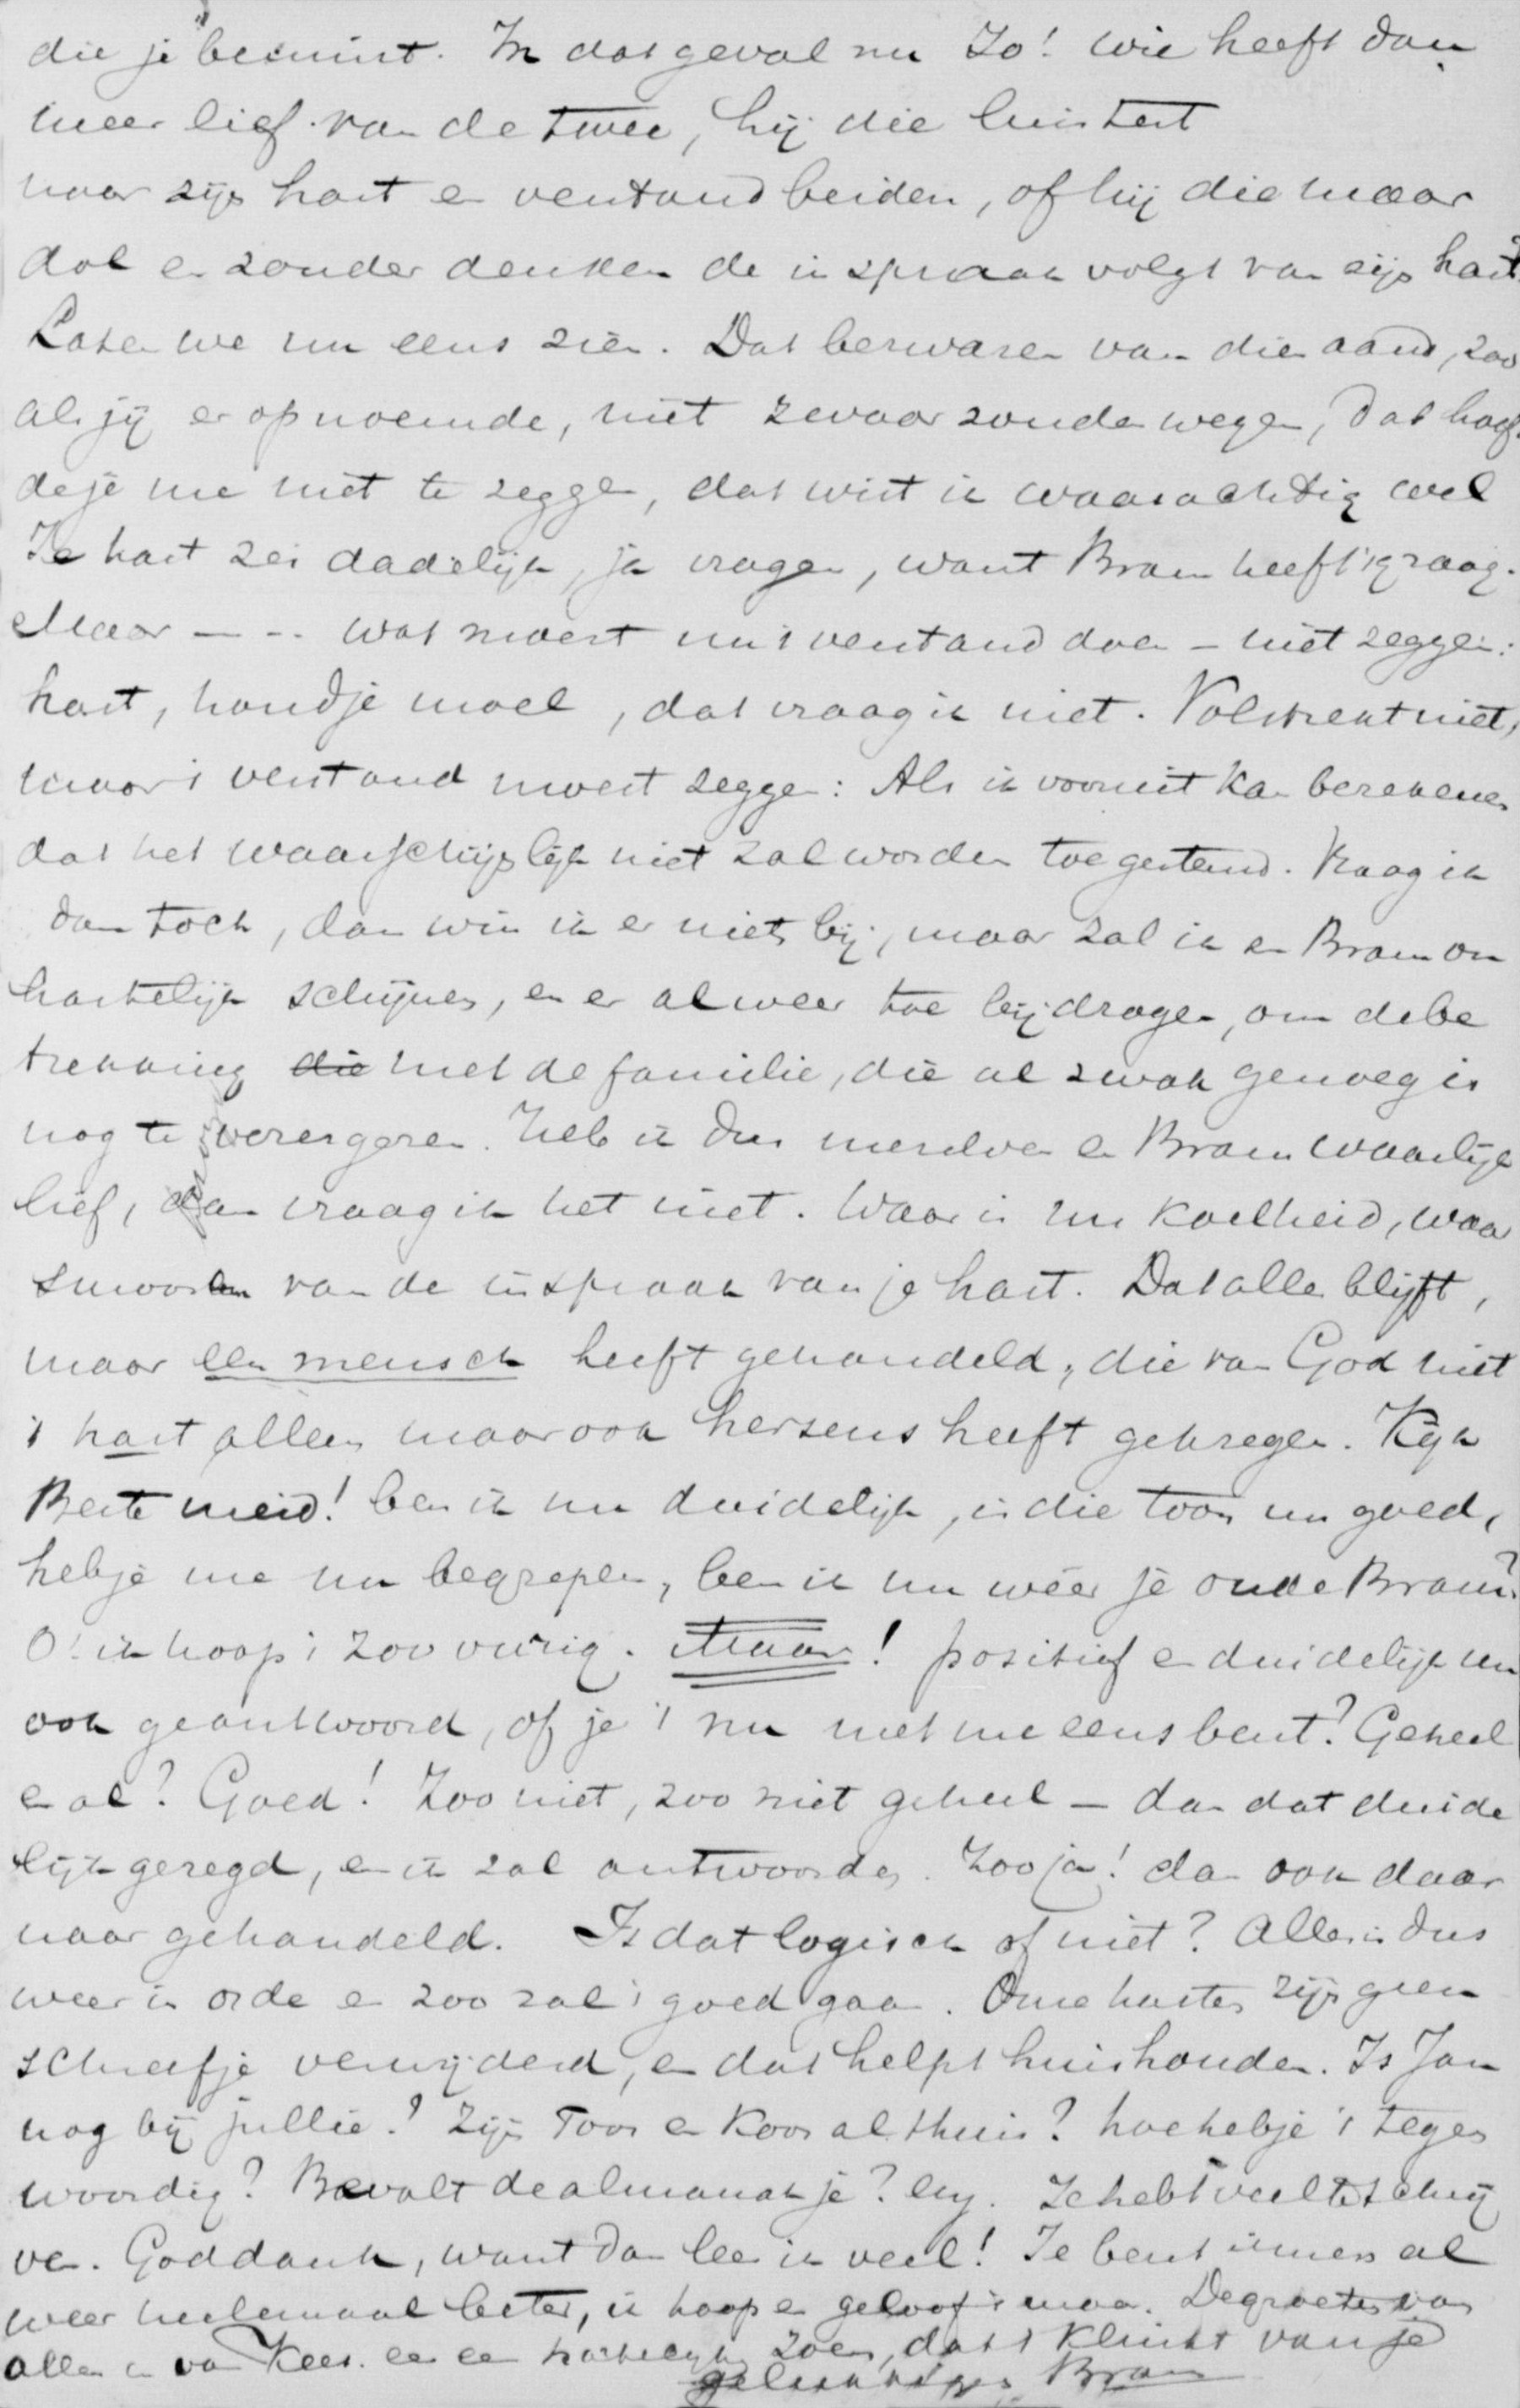 die je bemint. In dat geval nu Jo! wie heeft dan
meer lief van de twee, hij die luistert
naar zijn hart en verstand beiden, of hij die maar
dol en zonder denken de inspraak volgt van zijn hart?
Laten we nu eens zien. Dat bezwaren van dien aard, zoo
als jij er opnoemde, niet zwaar zouden wegen, dat hoef
de je me niet te zeggen, dat wist ik waarachtig wel
Je hart zei dadelijk, ja vragen, want Bram heeft 't graag.
Maar --- wat moest nu 't verstand doen – niet zeggen:
hart, houd je moel, dat vraag ik niet. Volstrekt niet,
maar 't verstand moest zeggen: Als ik vooruit kan berekenen
dat het waarschijnlijk niet zal worden toegestemd. Vraag ik
dan toch, dan win ik er niets bij, maar zal ik en Bram on
hartelijk schijnen, en er alweer toe bijdragen, om de be
trekking die met de familie, die al zwak genoeg is
nog te verergeren. Heb ik dus mezelve en Bram waarlijk
lief, dan vraag ik het niet. Waar is nu koelheid, waar
smoren van de inspraak van je hart. Dat alles blijft,
maar een mensch heeft gehandeld, die van God niet
't hart alleen maar ook hersens heeft gekregen. Kijk
Beste meid! ben ik nu duidelijk, is die toon nu goed,
heb je me nu begrepen, ben ik nu wéér je oude Bram?
O! ik hoop 't zoo vurig. Maar! positief en duidelijk nu
ook geantwoord, of je 't nu met me eens bent? Geheel
en al? Goed! Zoo niet, zoo niet geheel – dan dat duide
lijk gezegd, en ik zal antwoorden. Zoo ja! dan ook daar
naar gehandeld. Is dat logisch of niet? Alles is dus
weer in orde en zoo zal 't goed gaan. Onze harten zijn geen
schreefje verwijderd, en dat helpt huishouden. Is Jan
nog bij jullie? Zijn Toos en Koos al thuis? hoe heb je 't tegen
woordig? Bevalt de almanak je? Je hebt veel te schrij
ven. Goddank, want dan lees ik veel! Je bent immers al
weer heelemaal beter, ik hoop en geloof 't maar. De groeten van
allen en van Kees. en een hartelijken zoen, dat 't klinkt van je
gelukkigen Bram